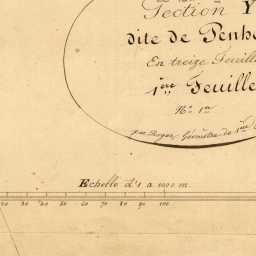 Section Y
dite de Penh
En treize Feuill
1ère Feuille
No. 1er
par Roger, Géomètre de 1ère C
Echelle d'1 a 1000 m.
20 30 40 50 60 70 80 90 100